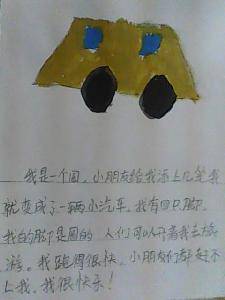 我是一个圆，小朋友给我添上几笔我
就变成了一辆小汽车。我有四只脚，
我的脚是圆的，人们可以开着我去旅
游。我跑得很快，小朋友们都赶不
上我。我很快乐！